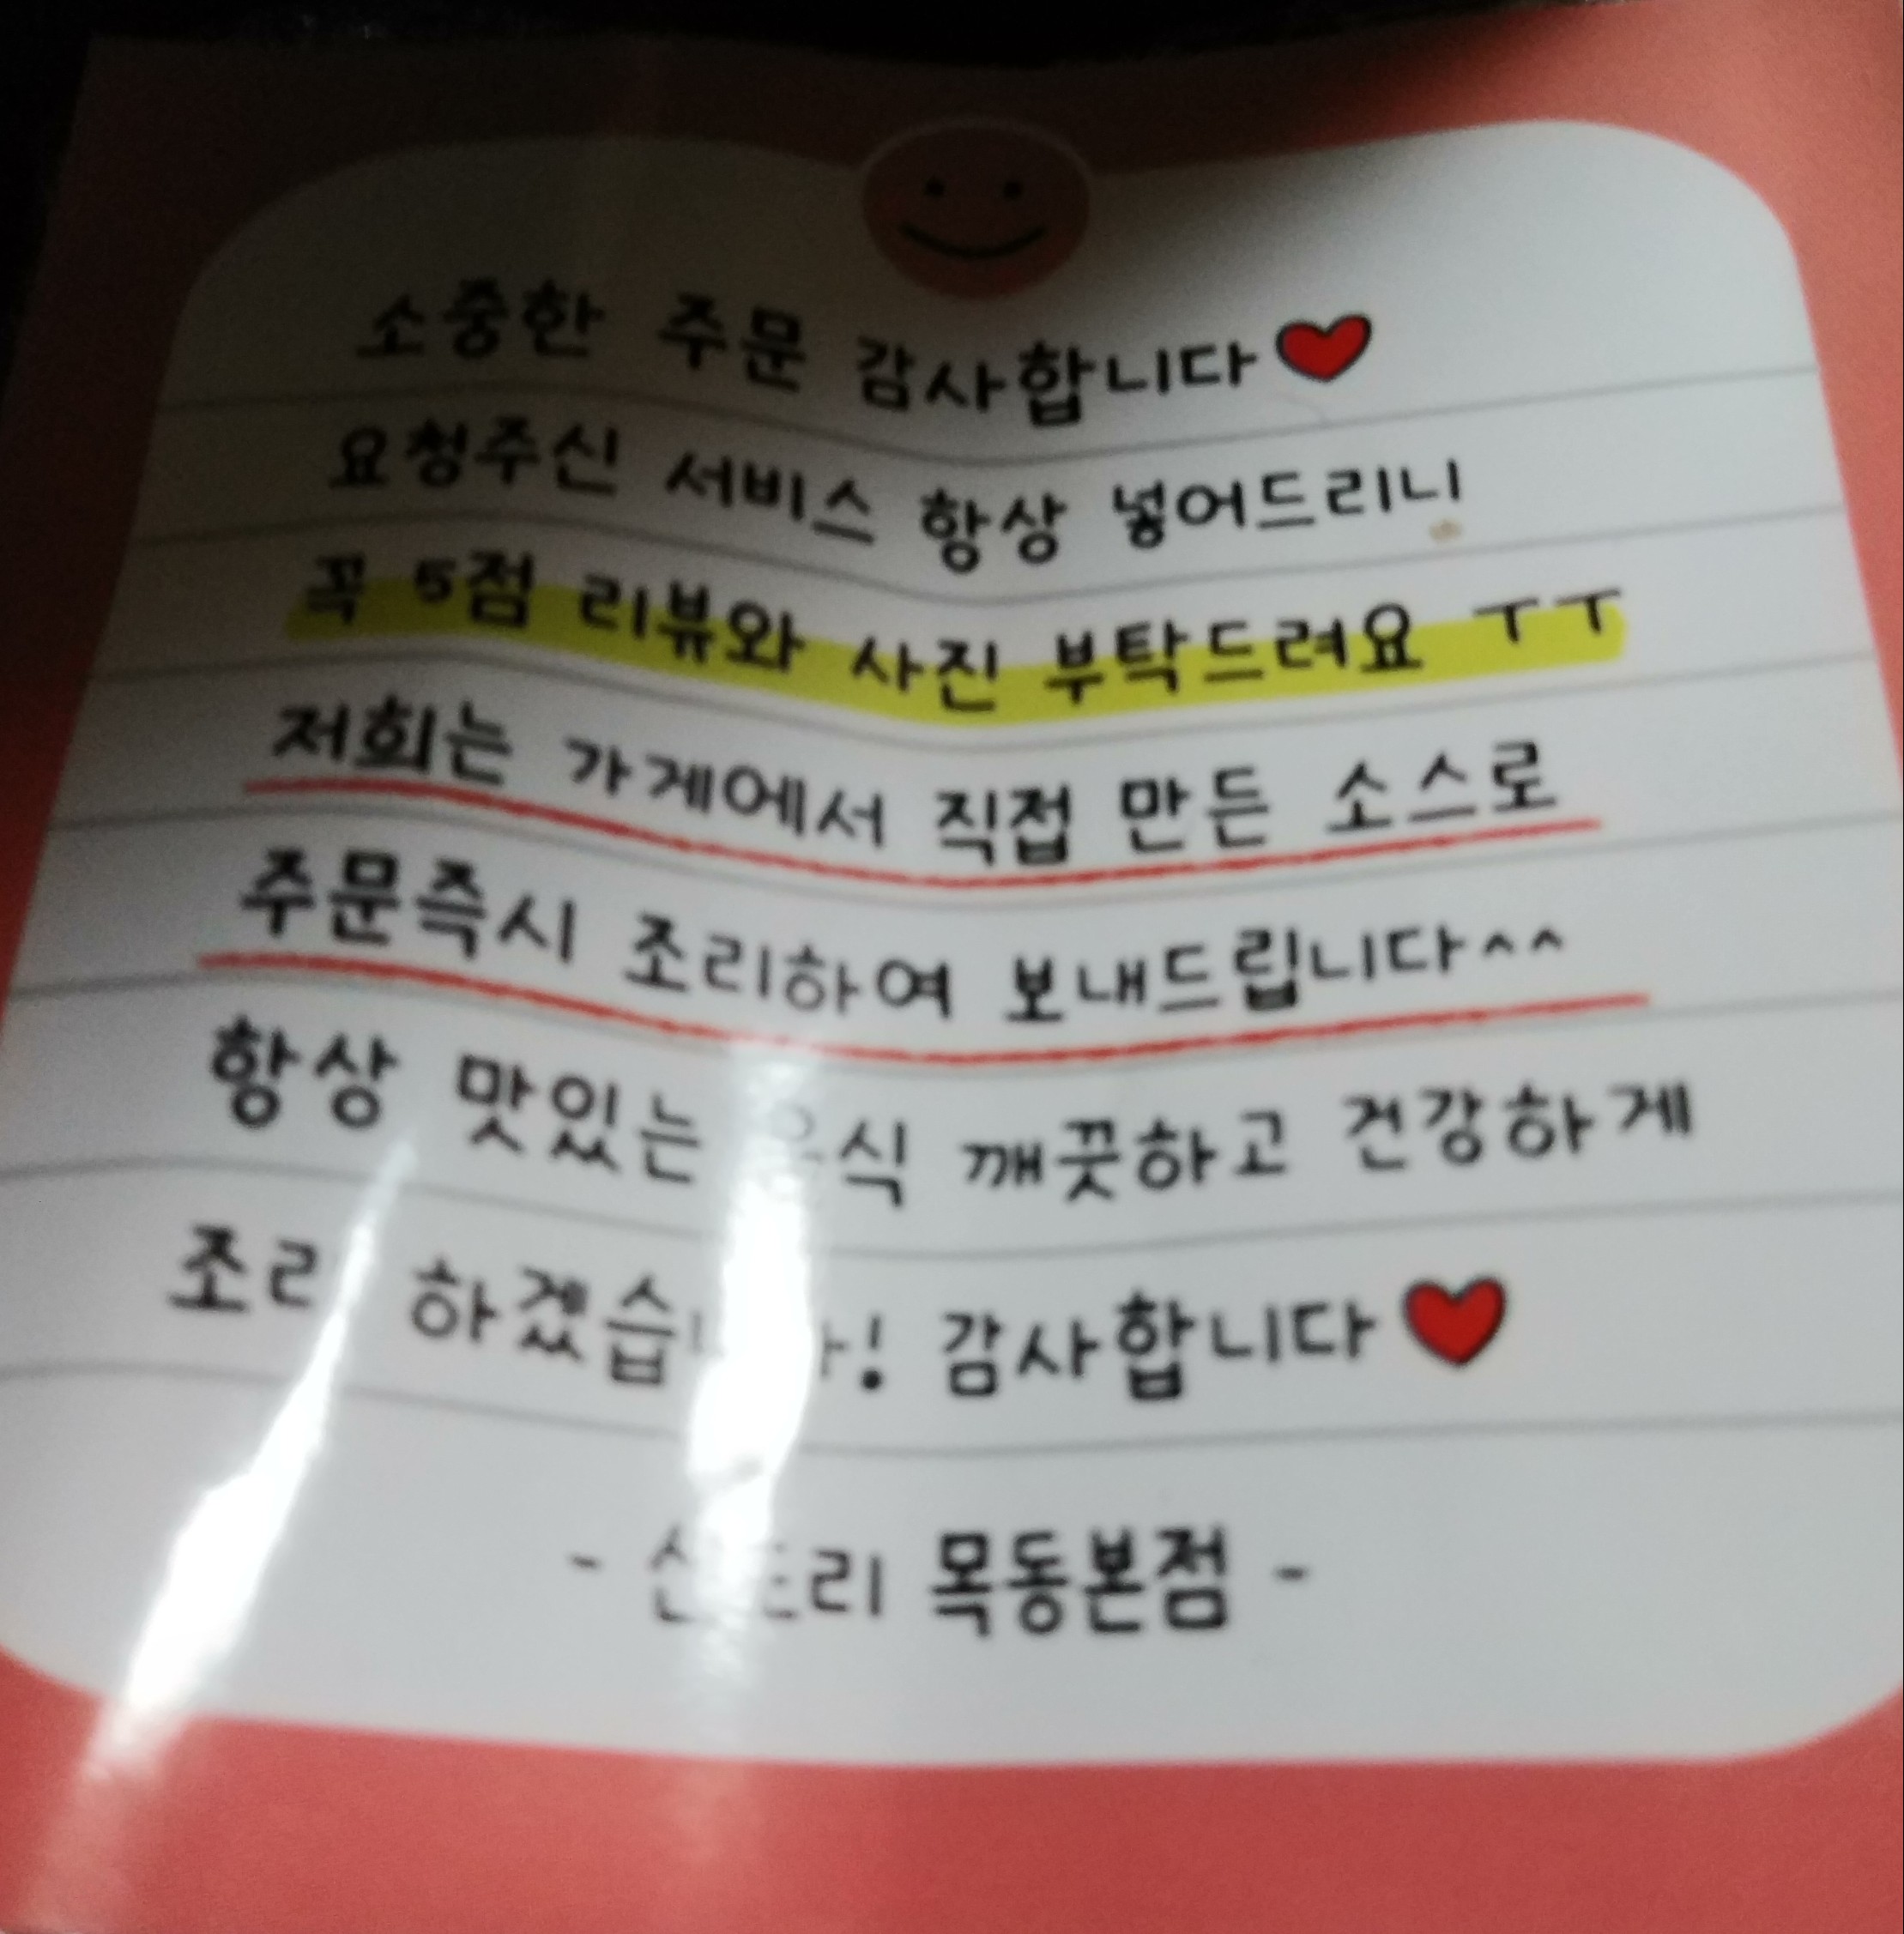 소중한 주문 감사합니다❤
요청주신 서비스 항상 넣어드리니
꼭 5점 리뷰와 사진 부탁드려요 ㅜㅜ
저희는 가게에서 직접 만든 소스로
주문즉시 조리하여 보내드립니다^^
항상 맛있는 음식 깨끗하고 건강하게
조리 하겠습니다! 감사합니다❤
- 목동본점 -